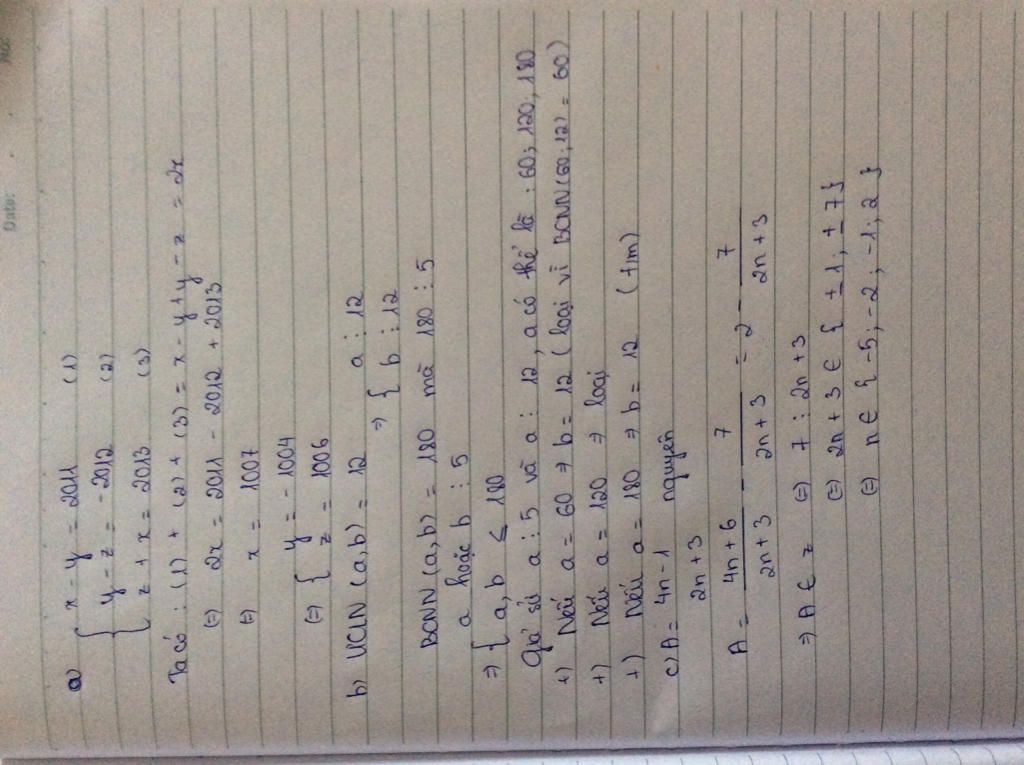 Date:
a) { x - y = 2011 (1)
y - z = -2012 (2)
z + x = 2013 (3)
Ta có : (1) + (2) + (3) = x - y + y - z + z + x = 2x
(=) 2x = 2011 - 2012 + 2013
(=) x = 1007
(=) { y = -1004
z = 1006
b) UCLN (a,b) = 12 a ⋮ 12
⇒ { b ⋮ 12
BCNN (a,b) = 180 mà 180 ⋮ 5
a hoặc b ⋮ 5
⇒ { a, b ≤ 180
Giả sử a ⋮ 5 và a ⋮ 12, a có thể là : 60; 120; 180
+) Nếu a = 60 ⇒ b = 12 (loại vì BCNN (60; 12) = 60)
+) Nếu a = 120 ⇒ loại
+) Nếu a = 180 ⇒ b = 12 (t/m)
c) A = 4n - 1 / 2n + 3 nguyên
A = 4n + 6 / 2n + 3 - 7 / 2n + 3 = 2 - 7 / 2n + 3
⇒ A ∈ z (=) 7 ⋮ 2n + 3
(=) 2n + 3 ∈ { ± 1; ± 7 }
(=) n ∈ { -5; -2; -1; 2 }